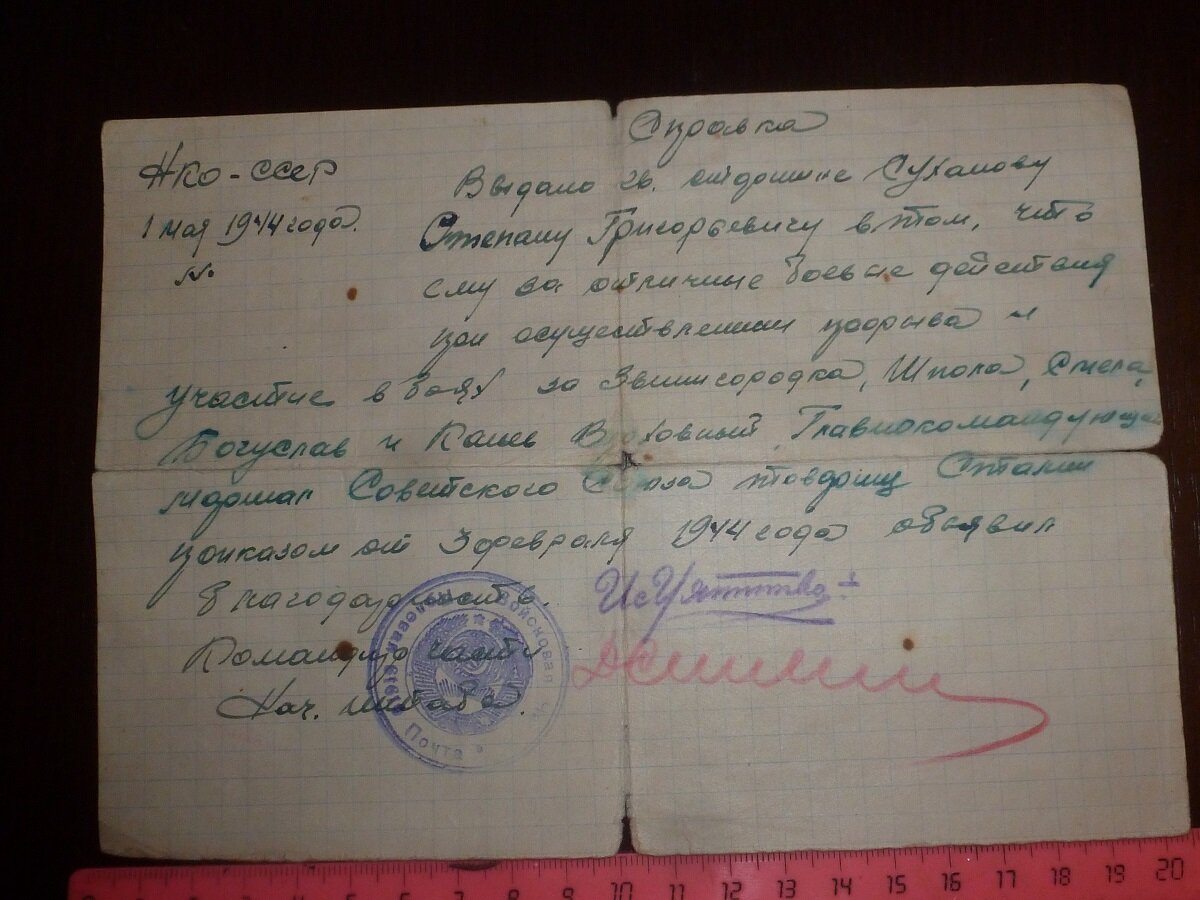 Справка
НКО-СССР
1 мая 1944 года.
№
Выдано гв. старшине Суханову
Степану Григорьевичу в том, что
ему за отличные боевые действия
при осуществлении прорыва и
участие в боях за Звенигородка, Шпола, Смела,
Богуслав и Канев Верховный Главнокомандующий
Маршал Советского Союза товарищ Сталин
приказом от 3 февраля 1944 года объявил
благодарность.
Командир части
Нач. штаба.
Полевая Почта
Войсковая
9 10 11 12 13 14 15 16 17 18 19 20